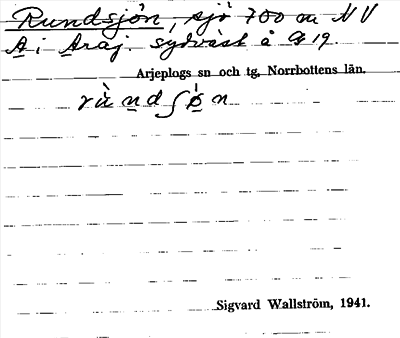 Rundsjön, sjö 700 m NV
A i Araj. sydväst å G 19.
Arjeplogs sn och tg, Norrbottens län.
rùndʃön
Sigvard Wallström, 1941.